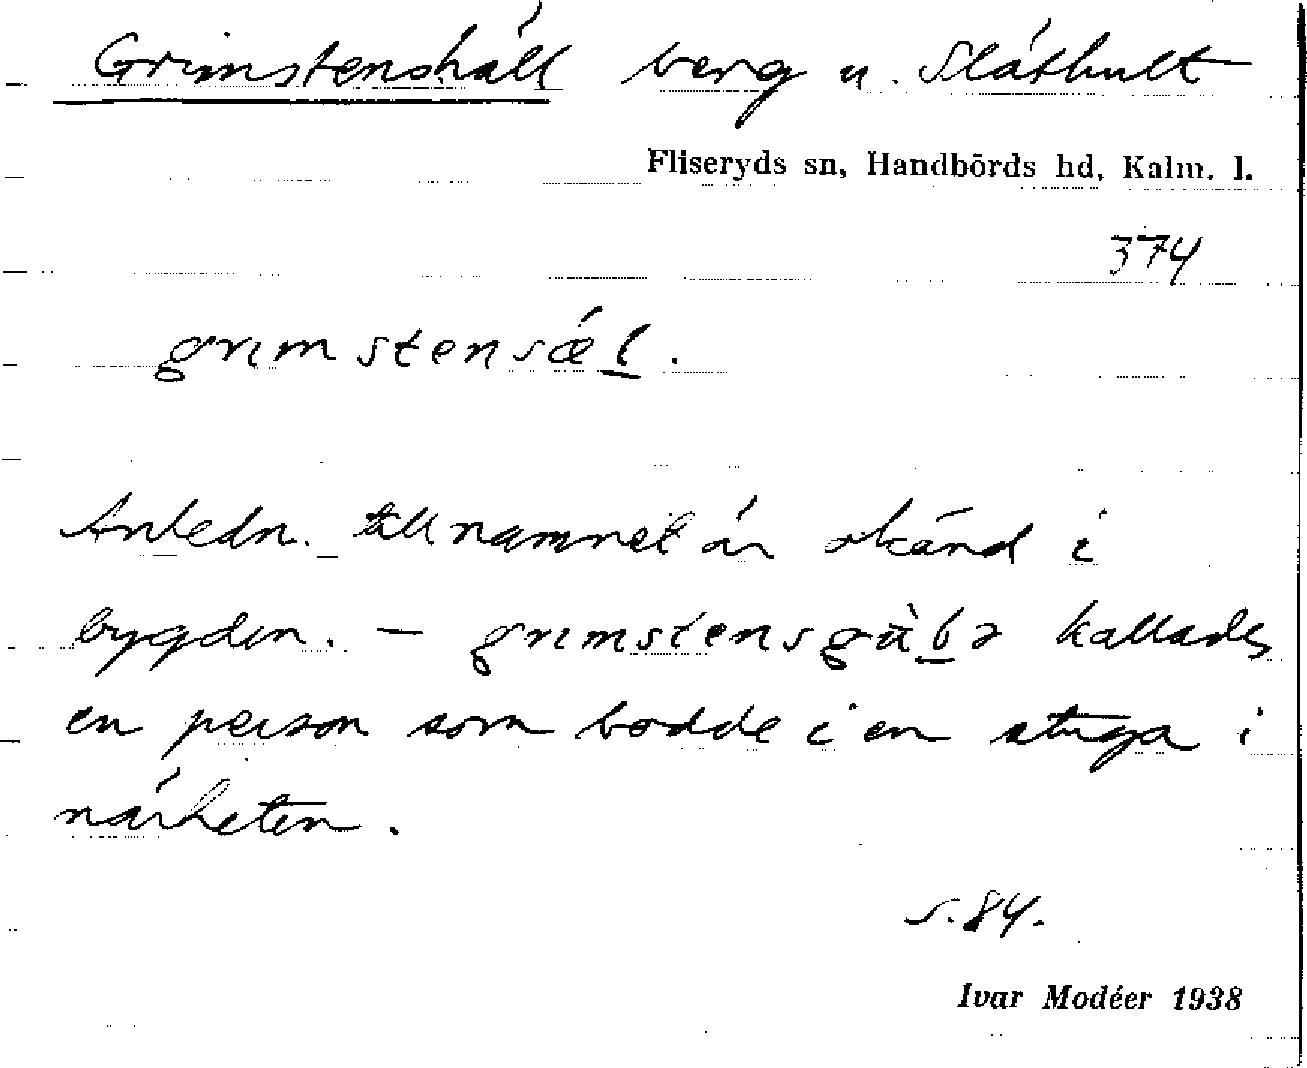 Grimstenshäll berg u. Slåthult
Fliseryds sn, Handbörds hd, Kalm. l.
374
grımstensǽl.
Anledn. till namnet är okänd i
bygden. — grımstensgùbə kallades
en person som bodde i en stuga i
närheten.
s. 84.
Ivar Modéer 1938